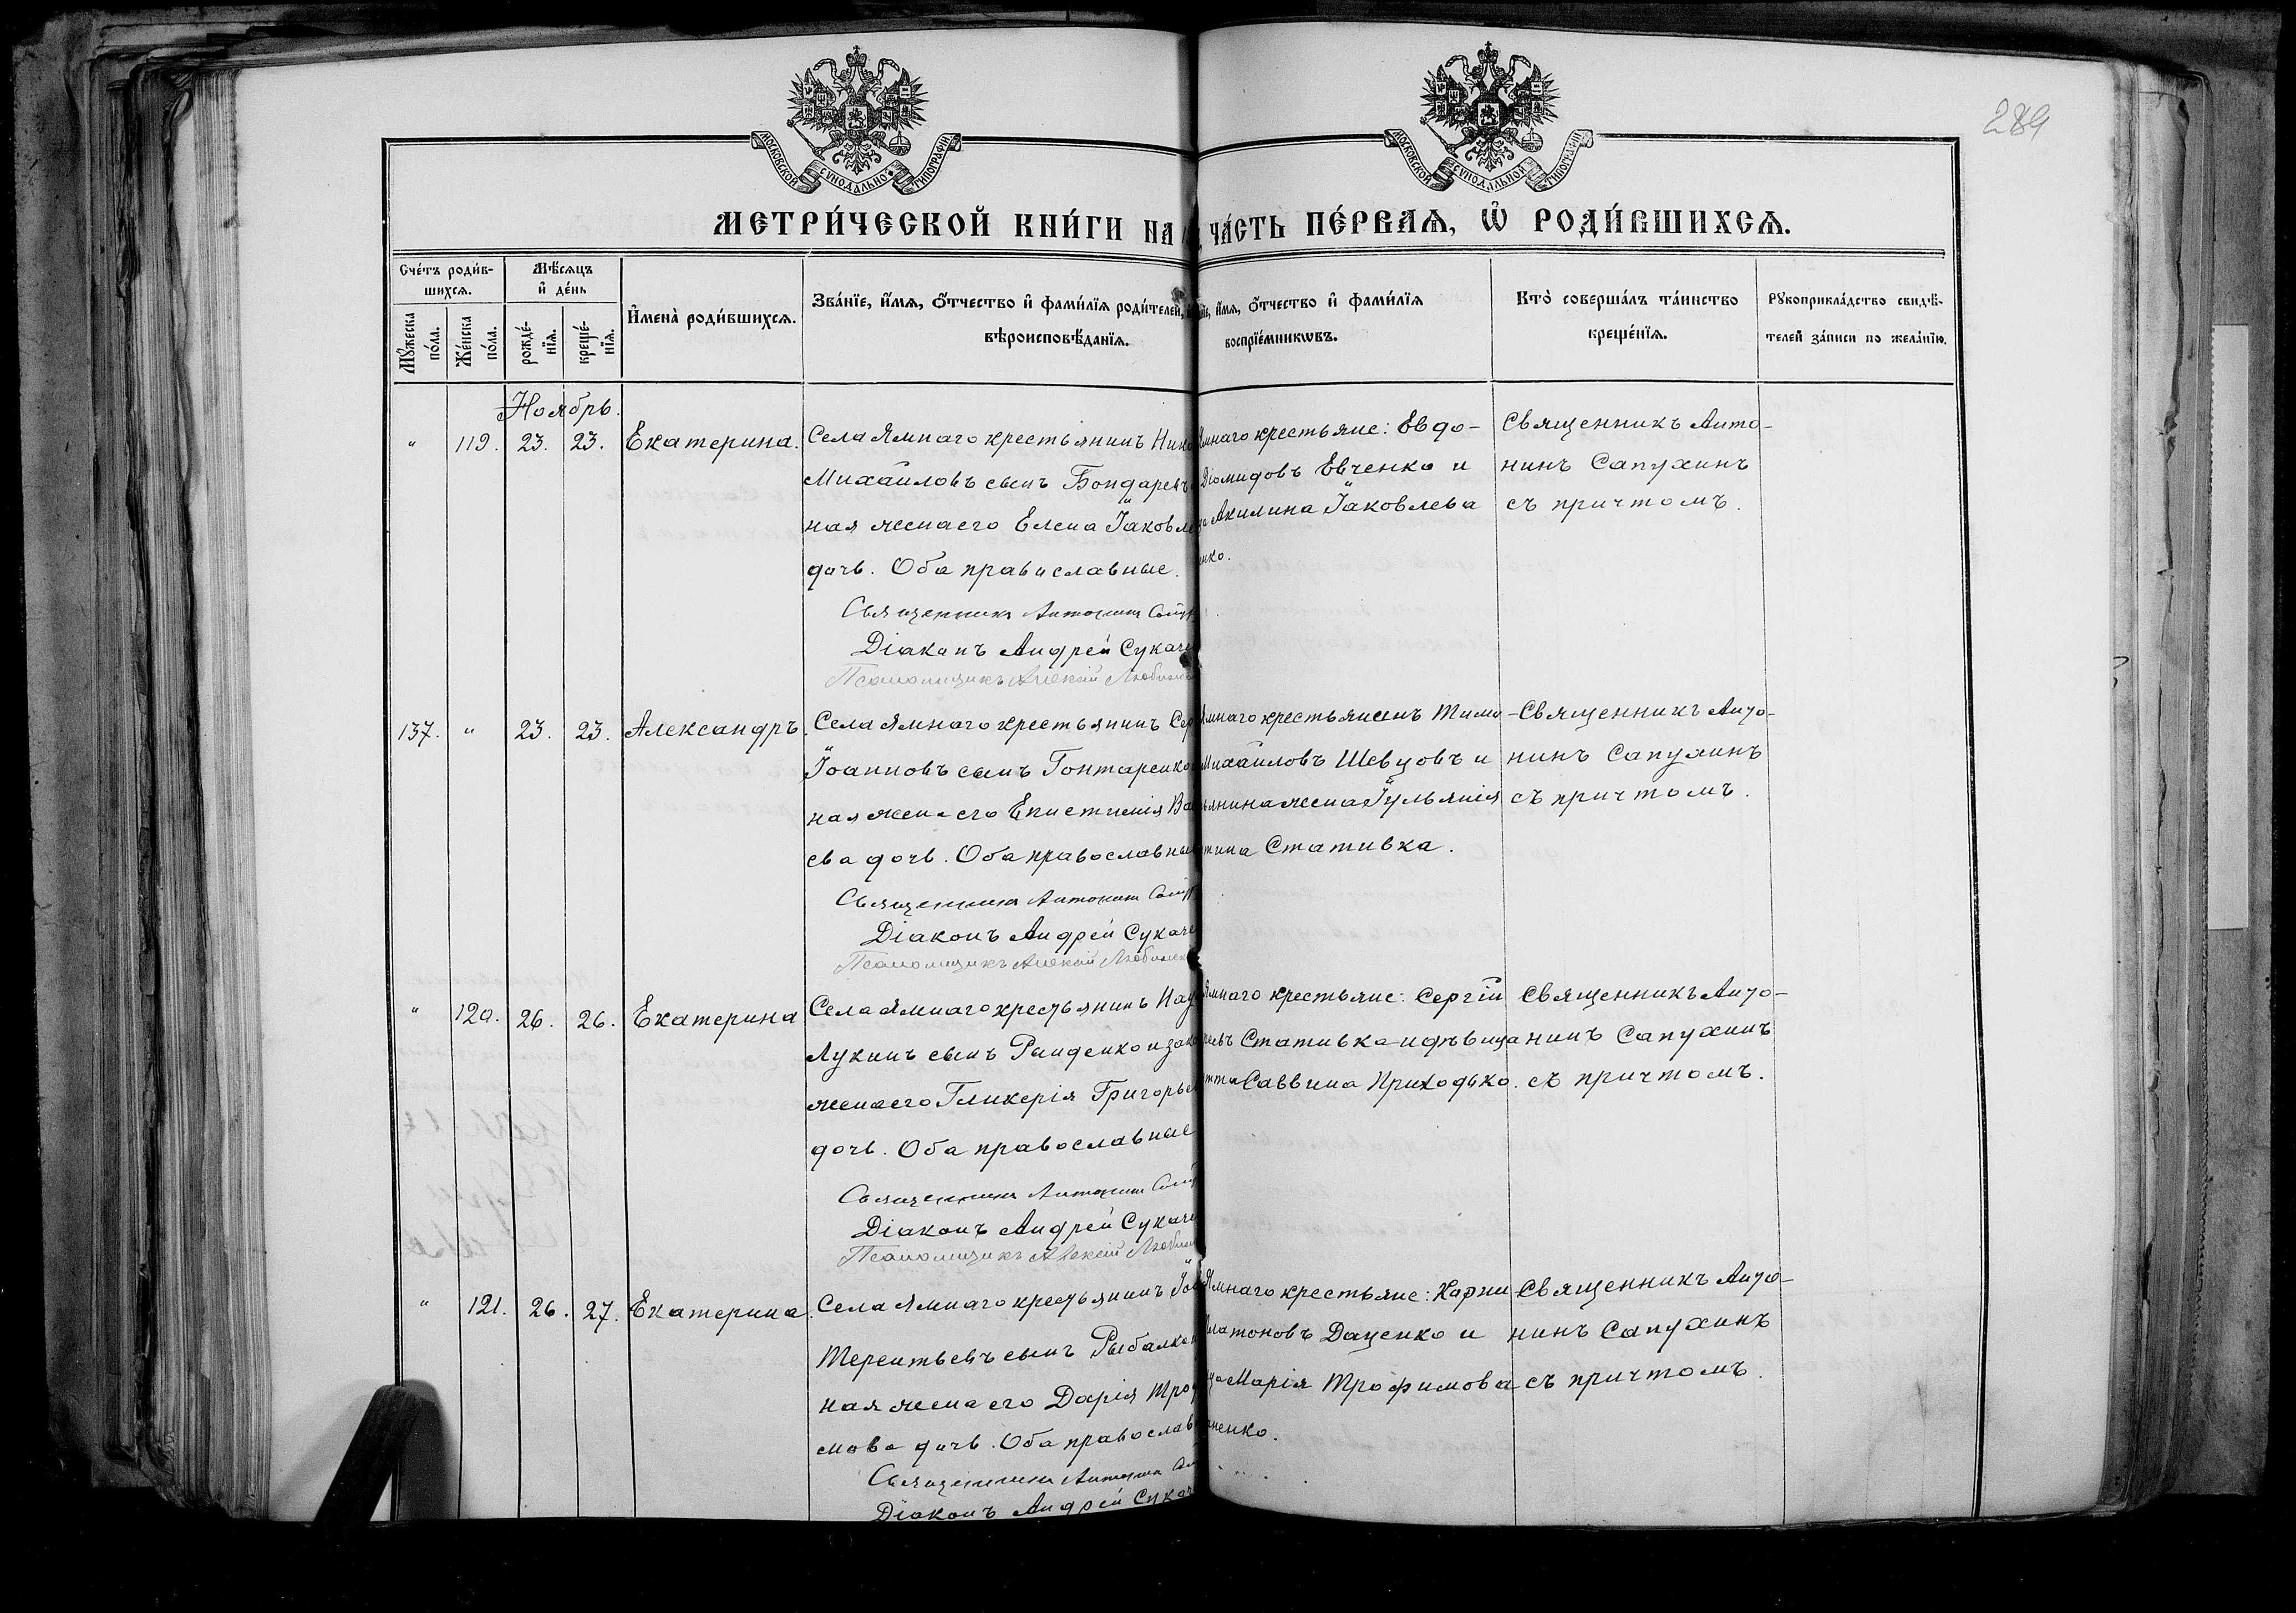 289
МОСКОВСКОЙ СѴНОДАЛЬНОЙ ТИПОГРАФІИ
МОСКОВСКОЙ СѴНОДАЛЬНОЙ ТИПОГРАФІИ
МЕТРИ́ЧЕСКОЙ КНИ́ГИ НА
ЧА́СТЬ ПЕ́РВАѦ, Ѽ РОДИ́ВШИХСѦ.
Сче́тъ роди́в-
шихсѧ.
Мѣ́сѧцъ
и҆ де́нь
Мꙋ́жеска
по́ла.
Же́нска
по́ла.
рожде́-
нїѧ.
креще́-
нїѧ.
И҆мена̀ роди́вшихсѧ.
Зва́нїе, и҆́мѧ, ѻ҆́тчество и҆ фами́лїѧ роди́телей,
вѣроисповѣ́данїѧ.
и҆́мѧ, ѻ҆́тчество и҆ фами́лїѧ
воспрїе́мникѡвъ.
Кто̀ соверша́лъ та́инство
креще́нїѧ.
Рꙋкоприкла́дство свидѣ́-
телей за́писи по жела́нїю.
Ноябрь.
" 119. 23. 23. Екатерина.
Села Ямнаго крестьянинъ
Михаиловъ сынъ Бондаревъ
ная жена его Елена Іаковле
дочь. Оба православные.
Священникъ Антонинъ
Діаконъ Андрей Сукаче
Псаломщикъ Алексій
Ямнаго крестьяне: Евдо-
Діомидовъ Евченко и
Акилина Іаковлева
енко.
Священникъ Анто-
нинъ Сапухинъ
съ причтомъ.
137. " 23. 23. Александръ.
Села Ямнаго крестьянинъ Сер
Іоанновъ сынъ Гонтаренко
ная жена его Епистимія Ва
ева дочь. Оба православны
Священникъ Антонинъ
Діаконъ Андрей Сукаче
Псаломщикъ Алексій
Ямнаго крестьянинъ Тимо
Михаиловъ Шевцовъ и
янина жена Іуліанія
тина Стативка.
Священникъ Анто-
нинъ Сапухинъ
съ причтомъ.
" 120. 26. 26. Екатерина
Села Ямнаго крестьянинъ Нау
Лукинъ сынъ Рынденко и зако
жена его Гликерія Григорьев
дочь. Оба православные
Священникъ Антонинъ
Діаконъ Андрей Сукаче
Псаломщикъ Алексій
Ямнаго крестьяне: Сергій
Стативка и дѣвица
Саввина Приходько.
Священникъ Анто-
нинъ Сапухинъ
съ причтомъ.
" 121. 26. 27. Екатерина.
Села Ямнаго крестьянинъ
Терентьевъ сынъ Рыбалко
ная жена его Дарія Троф
мова дочь. Оба православ
Священникъ Антонинъ
Діаконъ Андрей Сукаче
Ямнаго крестьяне: Карпъ
Платоновъ Даценко и
Марія Трофимова
ненко.
Священникъ Анто-
нинъ Сапухинъ
съ причтомъ.